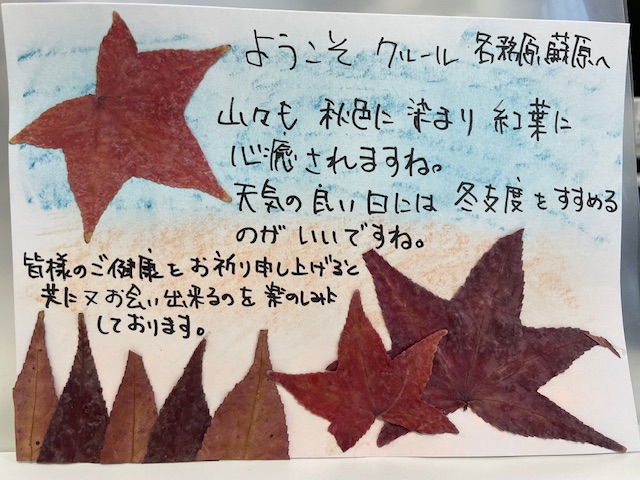 ようこそ クルール 各務原蘇原へ
山々も 秋色に 染まり 紅葉に
心癒されますね。
天気の良い日には 冬支度をすすめる
のがいいですね。
皆様のご健康をお祈り申し上げると
共に又お会い出来るのを楽のしみに
しております。